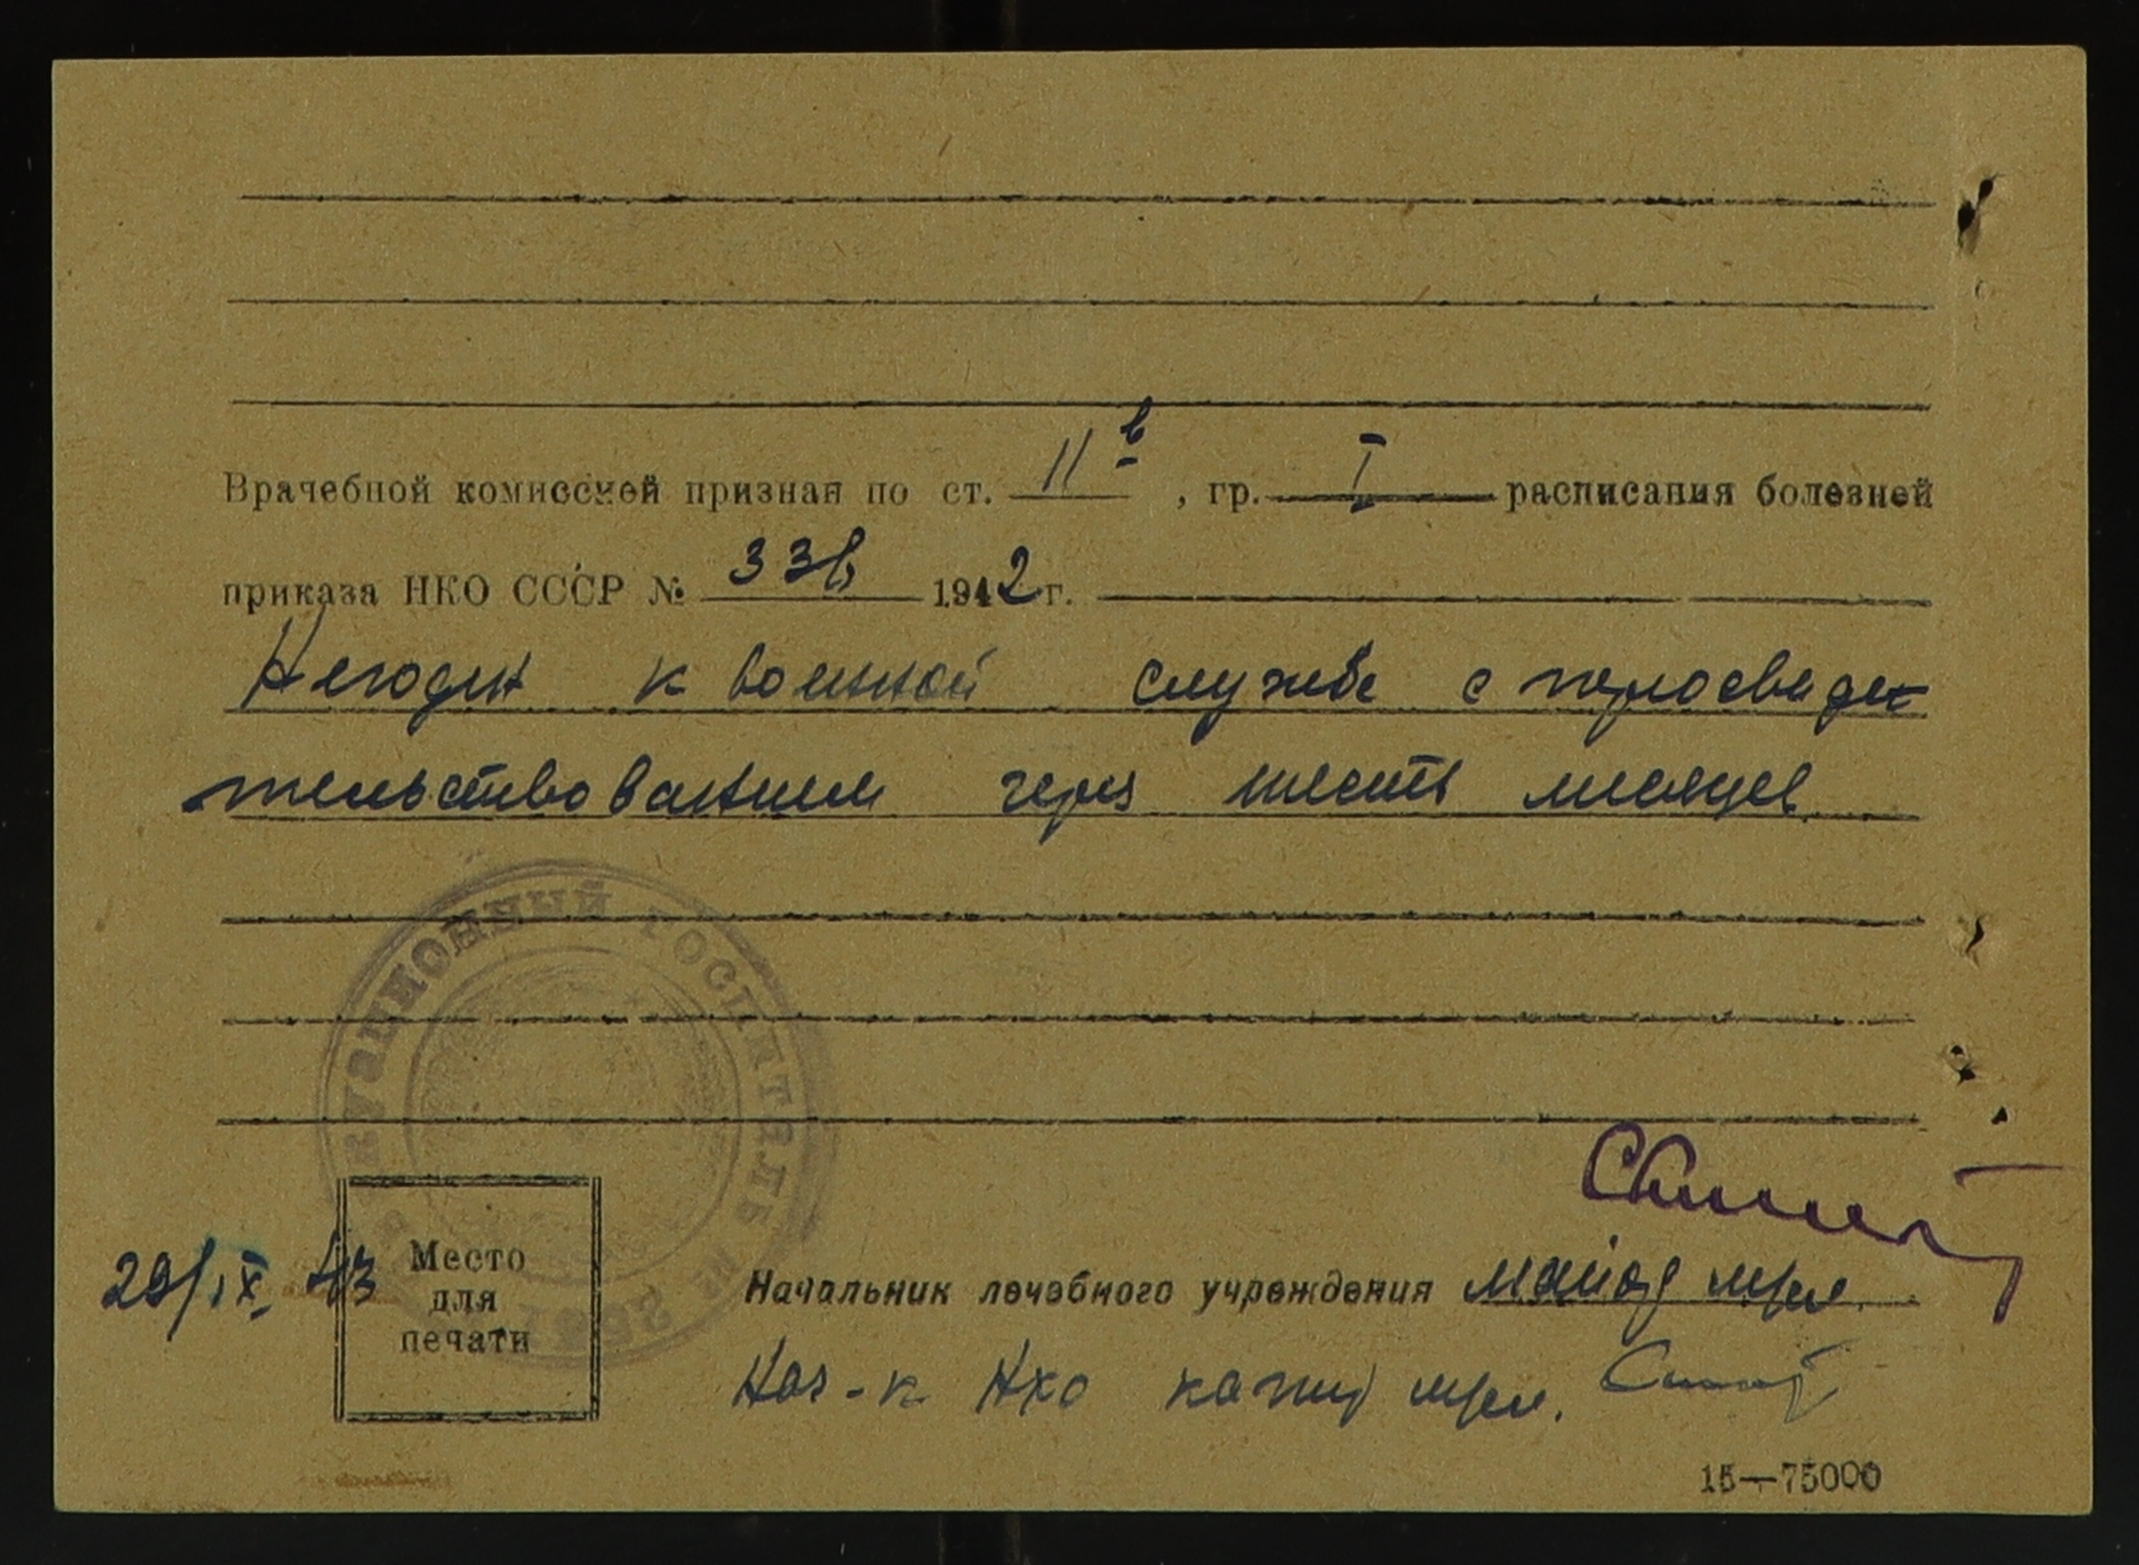 Врачебной комиссией признан по ст. 11в, гр. I расписания болезней
приказа НКО СССР № 336 1942 г.
Негоден к военной службе с переосвидет
тельствованием через шесть месяцев
ЭВАКУАЦИОННЫЙ ГОСПИТАЛЬ №
29/IX 43
Место
для
печати
Начальник лечебного учреждения майор м/сл.
Нач-к Нхо капит м/сл.
15—75000